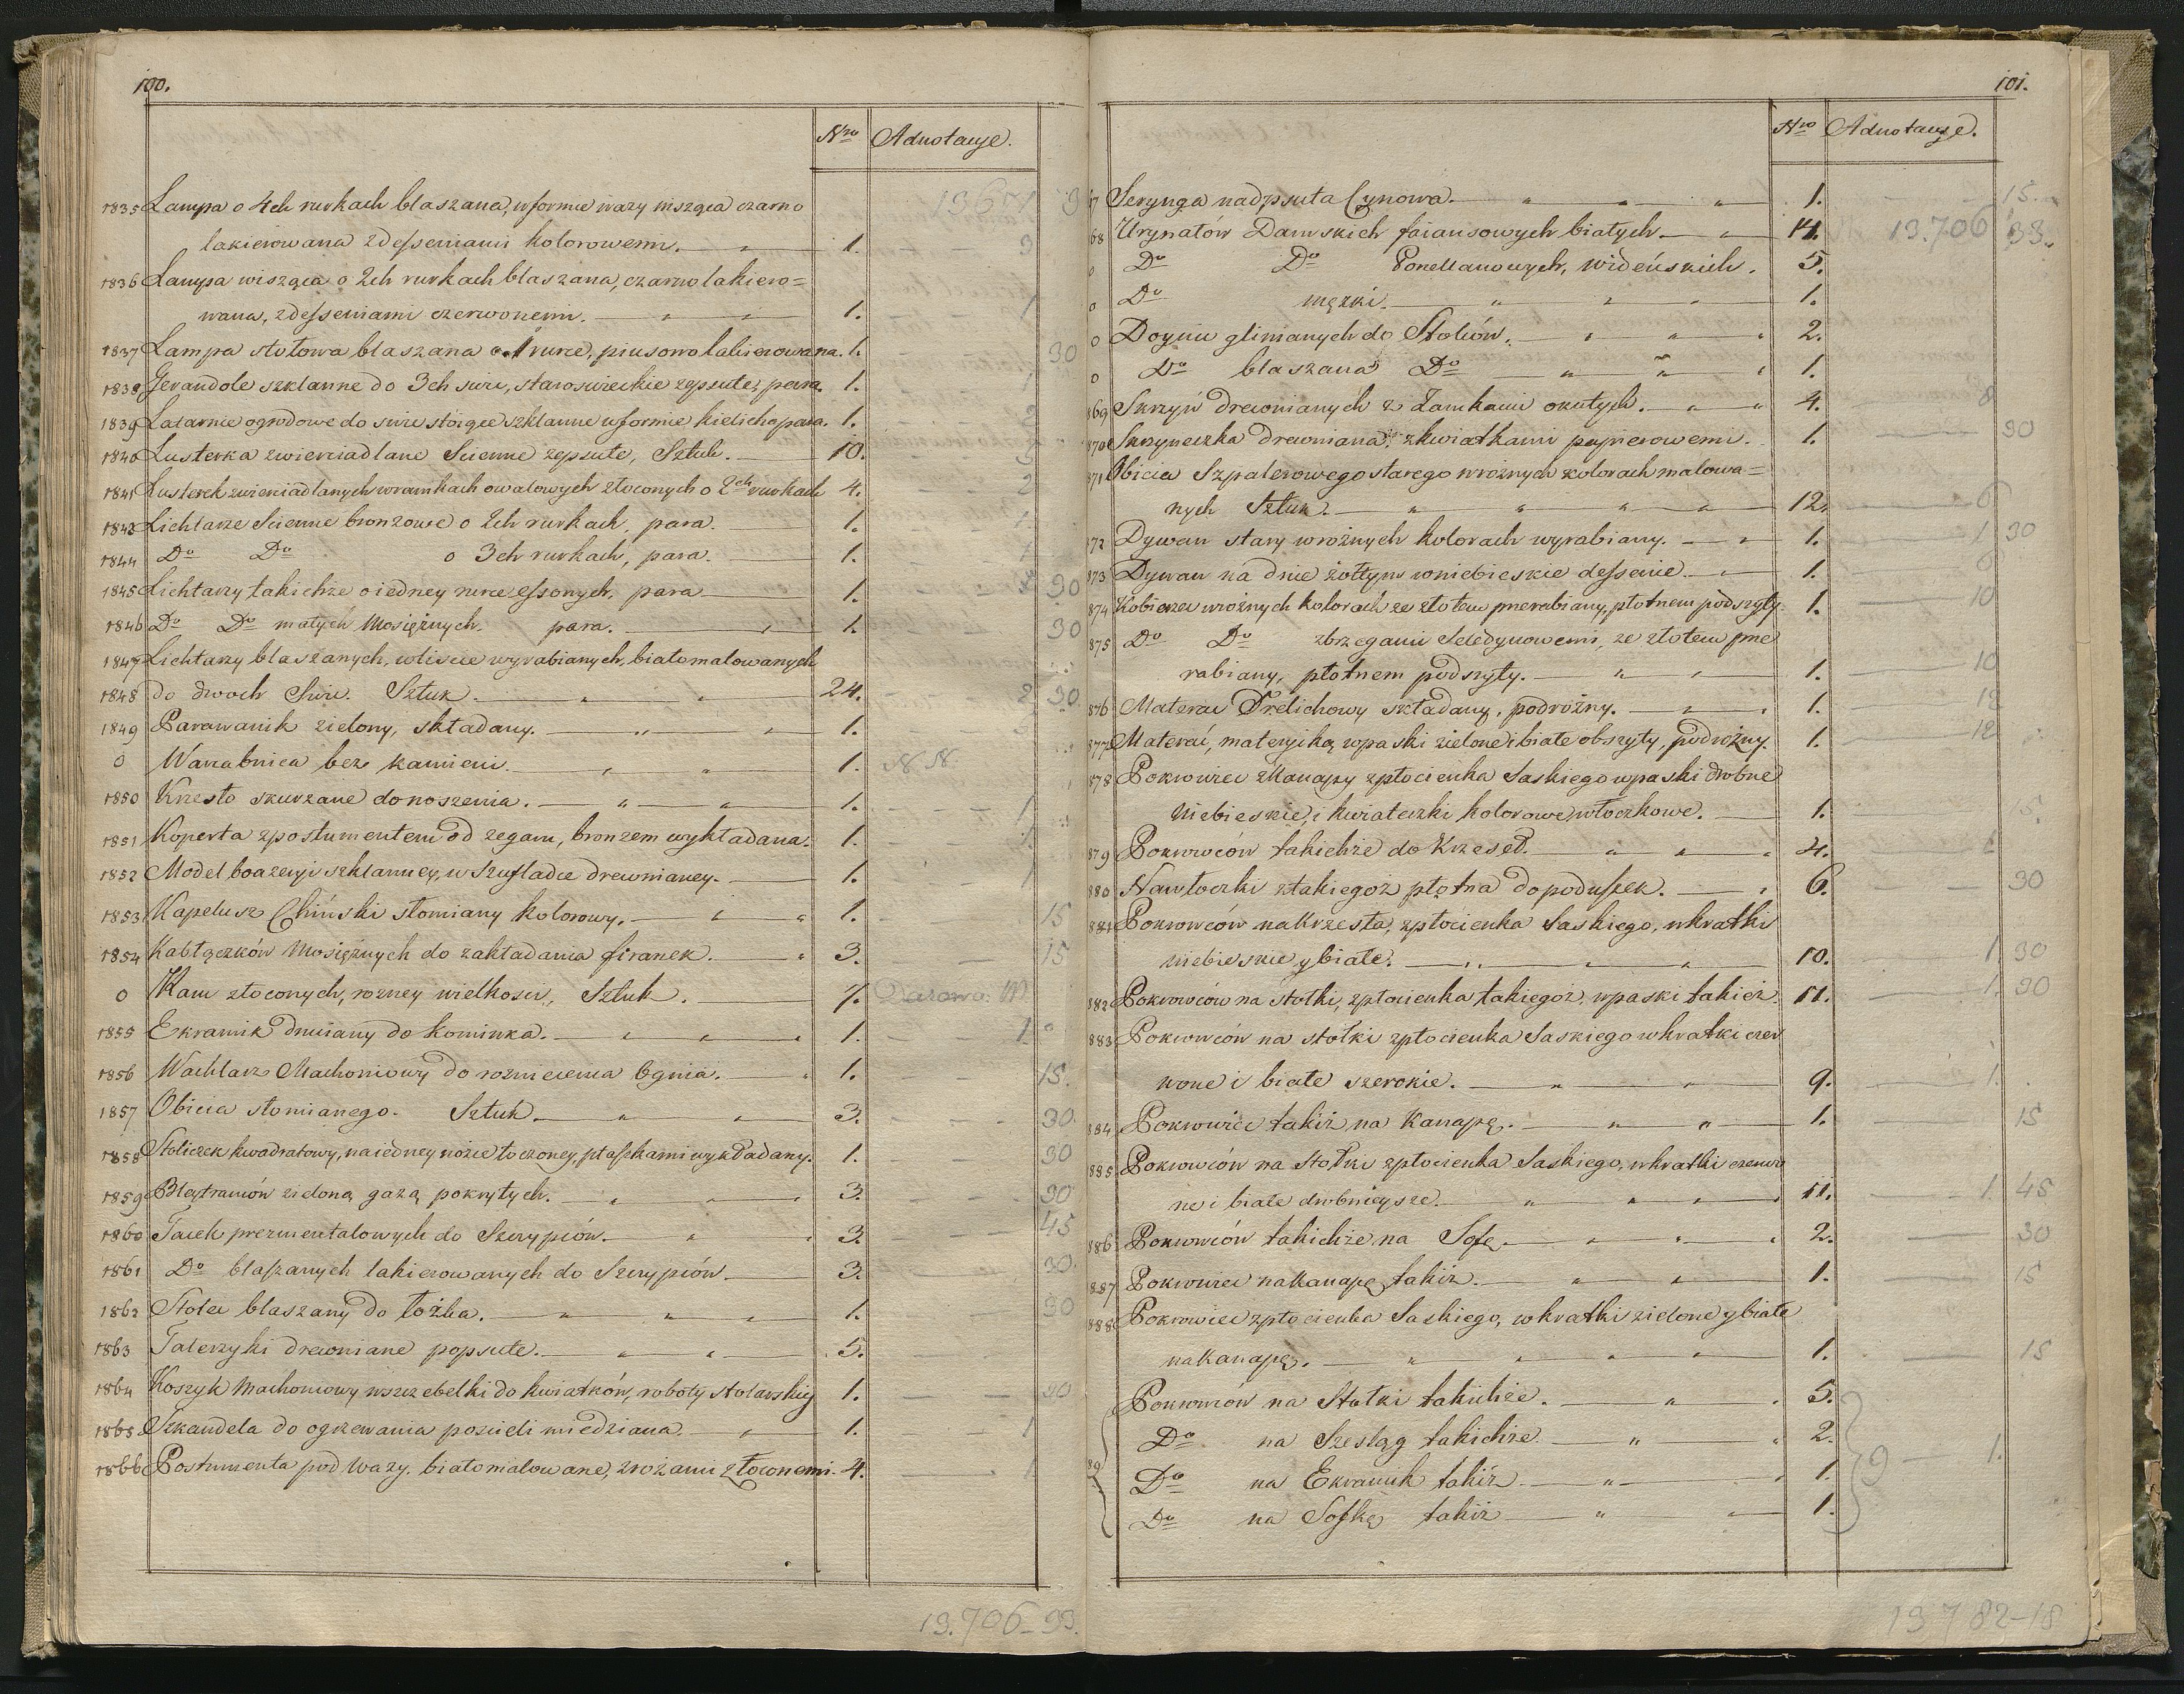 100.
Nro Adnotacye.
1835 Lampa o 4ch rurkach blaszana, w formie wazy wisząca czarno 13671 3
lakierowana z desseniami kolorowemi. 1. 3
1836 Lampa wisząca o 2ch rurkach blaszana, czarno lakiero=
wana, z desseniami czerwonemi. 1. 1
1837 Lampa stołowa blaszana o 1 rurce, piusowo lakierowana. 1. 30
1838 Gerandole szklanne do 3ch swic, staroswieckie zepsute, para. 1. 1
1839 Latarnie ogrodowe do swic stoiące szklanne w formie kielicha para. 1. 2
1840 Lusterka zwierciadlane Scienne zepsute, Sztuk. 10. 5
1841 Lusterek zwierciadlanych w ramkach owalowych złoconych o 2ch rurkach 4. 2
1843 Lichtarze Scienne bronzowe o 2ch rurkach, para. 1. 1.
1844 Do Do o 3ch rurkach, para. 1. 1
1845 Lichtarzy takichże o iedney rurce essonych, para 1. 30
1846 Do Do małych Mosiężnych. para. 1. 30
1847 Lichtarzy blaszanych, w liscie wyrabianych, biało malowanych
1848 do dwoch Swic. Sztuk. 24. 2 30
1849 Parawanik zielony, składany. 1. 3
0 Warcabnica bez kamieni. 1. N.N.
1850 Krzesło skurzane do noszenia. 1. 1
1851 Koperta z postumentem od zegaru, bronzem wykładana. 1. 1.
1852 Model boazeryi szklanney, w Szufladce drewnianey. 1. 1
1853 Kapelusz Chiński słomiany kolorowy. 1. 15
1854 Kabłączków Mosiężnych do zakładania firanek. 3. 15
0 Ram złoconych, rozney wielkosci, Sztuk. 7. Darowa:
1855 Ekranik druciany do kominka. 1. 1
1856 Wachlarz Machoniowy do rozniecenia Ognia. 1. 15.
1857 Obicia słomianego. Sztuk. 3. 30.
1858 Stoliczek kwadratowy, na iedney nożce toczoney, ptaszkami wykładany. 1. 30
1859 Bleytramów zieloną gazą pokrytych. 3. 30
1860 Tacek prezmentalowych do Szczypców. 3. 45
1861 Do blaszanych lakierowanych do Szczypców. 3. 30.
1862 Stolec blaszany do łóżka. 1. 30
1863 Talerzyki drewniane popsute. 5.
1864 Koszyk Machoniowy w szczebelki do kwiatków, roboty stolarskiey 1. 30
1865 Szkandela do ogrzewania poscieli miedziana. 1. 1
1866 Postumenta pod Wazy. biało malowane, z rożami złoconemi. 4. 1
13.706-33.
101.
Nro Adnotacye.
67 Serynga nadpsuta Cynowa. 1. 15.
68 Urynałów Damskich faiansowych białych. 14. 13.706 33.
0 Do Do Porcellanowych, widenskich. 5.
0 Do męzki. 1.
0 Doyniu glinianych do Stolców. 2.
0 Do blaszana Do 1.
869 Skrzyń drewnianych z Zamkami okutych. 4. 8
870 Skrzyneczka drewniana z kwiatkami papierowemi. 1. 30
871 Obicia Szpalerowego starego w rożnych kolorach malowa=
nych Sztuk. 12. 6
872 Dywan stary w rożnych kolorach wyrabiany. 1. 1 30
873 Dywan na dnie żołtym w niebieskie dessenie. 1. 6
874 Kobierzec w rożnych kolorach ze złotem przerabiany, płotnem podszyty. 1. 10
875 Do Do z brzegami Seledynowemi, ze złotem prze
rabiany, płotnem podszyty. 1. 10
876 Materac Drelichowy składany, podróżny. 1. 12
877 Materac, materyiką w paski zielone i białe obszyty, podrożny. 1. 12
878 Pokrowiec z Kanapy z płocienka Saskiego w paski drobne
niebieskie, i kwiateczki kolorowe włoczkowe. 1. 5.
879 Pokrowców takichże do Krzeseł. 4. 1
880 Nawłoczki z takiegoż płotna do poduszek. 6. 30
881 Pokrowców na Krzesła, z płocienka Saskiego, w kratki
niebieskie y białe. 10. 1 30
882 Pokrowców na stołki, z płocienka takiegoż, w paski takież 11. 1. 30
883 Pokrowców na stołki z płocienka Saskiego w kratki czer
wone i białe szerokie. 9. 1.
884 Pokrowiec takiż na Kanapę. 1. 15
885 Pokrowców na Stołki z płocienka Saskiego, w kratki czerwo
ne i białe drobnieysze. 11. 1. 45
886 Pokrowców takichże na Sofę 2. 30
887 Pokrowiec na Kanapę takiż. 1. 15
888 Pokrowiec z płocienka Saskiego, w kratki zielone y białe
na Kanapę. 1. 15
Pokrowców na Stołki takichże. 5.
Do na Szesląg takichże 2.
89 Do na Ekranik takiż 1. 9 1.
Do na Sofkę takiż 1.
13782-18